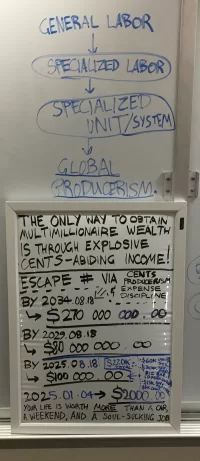 GENERAL LABOR
SPECIALIZED LABOR
SPECIALIZED
UNIT/SYSTEM
GLOBAL
PRODUCERISM.
THE ONLY WAY TO OBTAIN
MULTIMILLIONAIRE WEALTH
IS THROUGH EXPLOSIVE
CENTS-ABIDING INCOME!
ESCAPE # VIA CENTS
PRODUCERISM
EXPENSE
DISCIPLINE
BY 2034.08.18
↳ $270 000 000.00
BY 2029.08.18
↳ $90 000 000.00
BY 2025.08.18
↳ $100 000.00
2025.01.04 → $2000.00
YOUR LIFE IS WORTH MORE THAN A CAR,
A WEEKEND, AND A SOUL-SUCKING JOB